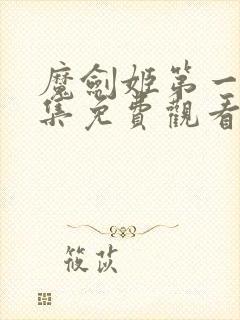 魔劍姬第一
集免費觀看
筱苡